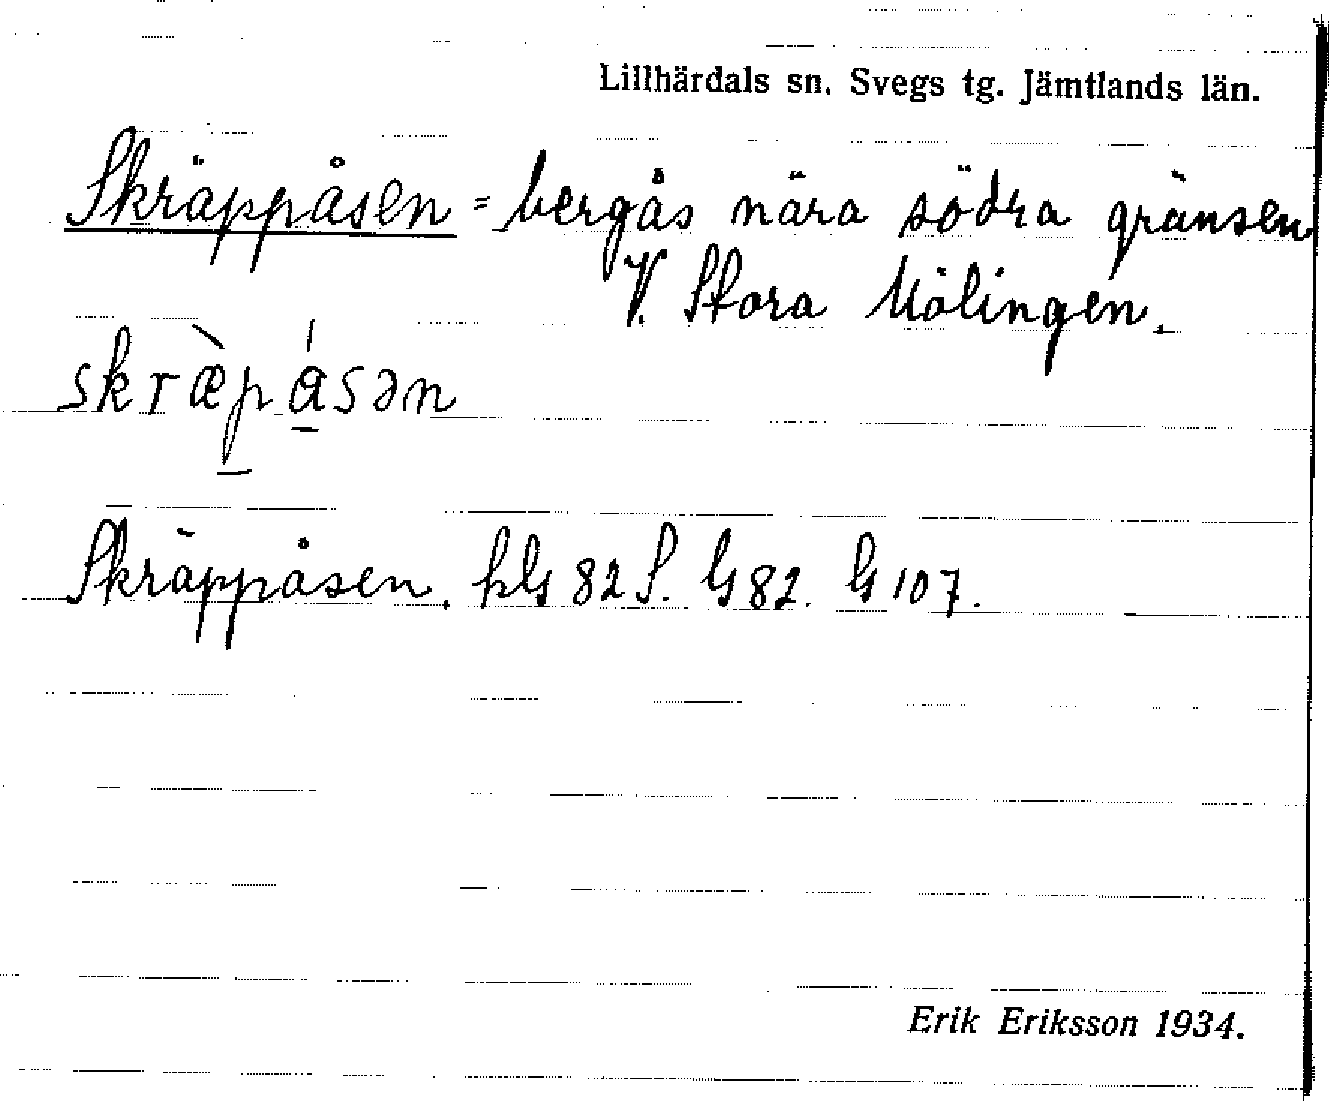 Lillhärdals sn. Svegs tg. Jämtlands län.
Skräppåsen = bergås nära södra gränsen
V. Stora Mölingen.
skræ̀pásən
Skräppåsen. hG 82 S. G 82. G 107.
Erik Eriksson 1934.